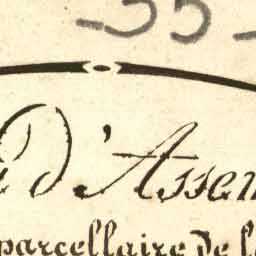 -55-
d'Assem
parcellaire de l